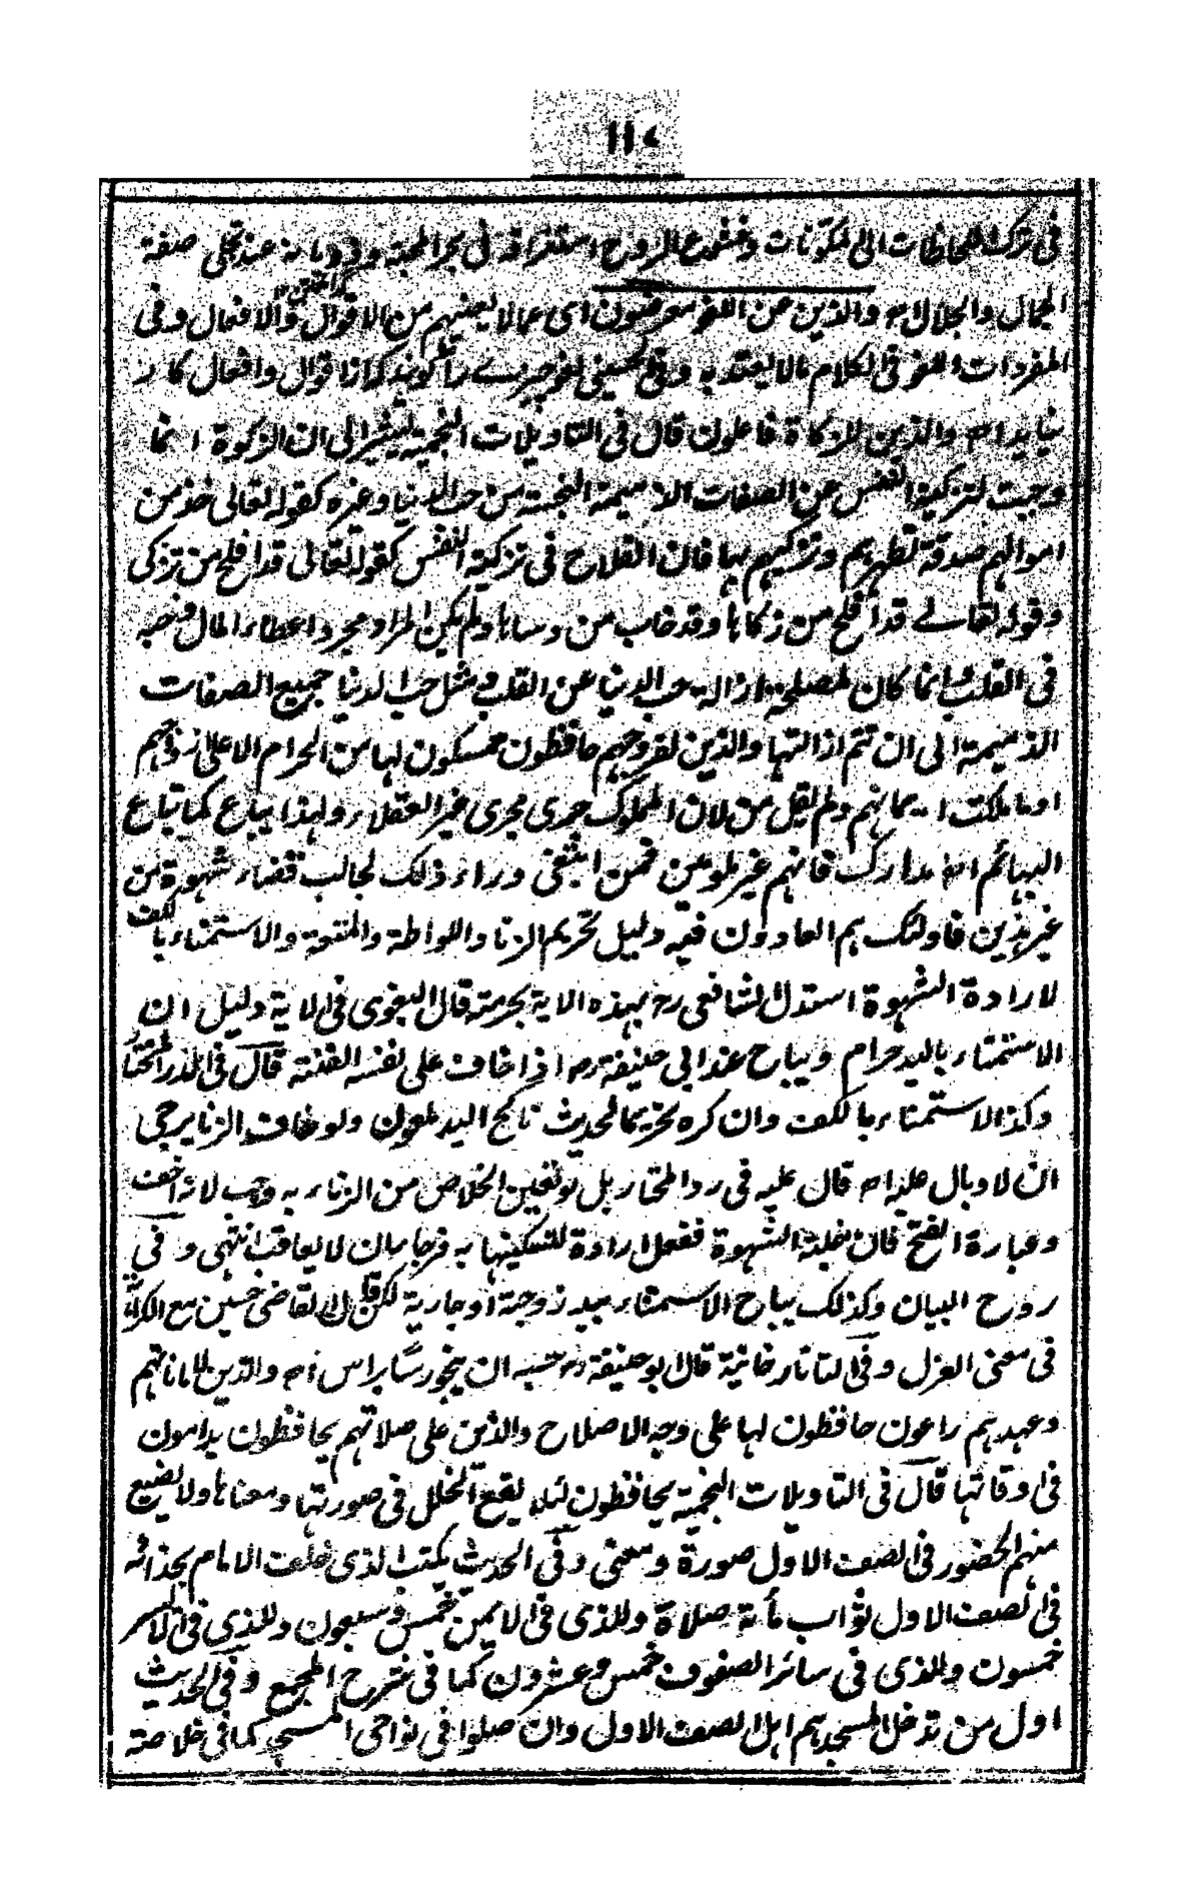 ١١٤
فى ترك اللحاظات الى المكونات وخشوع الروح استغراقه فى بحر المحبة وذوبانه عند تجلى صفة
الجمال والجلال اه والذين هم عن اللغو معرضون اى عمالا يعنيهم من الاقوال والافعال وفى
المفردات اللغو فى الكلام مالا يعتد به وفى الحسينى لغو چيزے را گويند كه از اقوال وافعال كار
نيايد اه والذين هم للزكاة فاعلون قال فى التاويلات النجمية يشير الى ان الزكوة انما
وجبت لتزكية النفس عن الصفات الذميمة النجسة من حب الدنيا وغيره كقوله تعالى خذ من
اموالهم صدقة تطهرهم وتزكيهم بها فان الفلاح فى تزكية النفس كقوله تعالى قد افلح من تزكى
وقوله تعالے قد افلح من زكاها وقد خاب من دساها ولم يكن المراد مجرد اعطاء المال وحبه
فى القلب وانما كان لمصلحة ازالة حب الدنيا عن القلب ومثل حب الدنيا جميع الصفات
الذميمة الى ان تتم ازالتها والذين هم لفروجهم حافظون ممسكون لها من الحرام الا على ازواجهم
او ما ملكت ايمانهم ولم يقل من لان المملوك جرى مجرى غير العقلاء ولهذا يباع كما تباع
البهائم اه مدارك فانهم غير ملومين فمن ابتغى وراء ذلك لجالب قضاء شهوة من
غير هذين فاولئك هم العادون فيه دليل تحريم الزنا واللواطة والمتعة والاستمناء بالكف
لارادة الشهوة استدل الشافعى رح بهذه الاية بحرمته قال البغوى فى الاية دليل ان
الاستمناء باليد حرام ويباح عند ابى حنيفة رح اذا خاف على نفسه الفتنة قال فى الدر المختار
وكذا الاستمناء بالكف وان كره تحريما لحديث ناكح اليد ملعون ولو خاف الزنا يرجى
ان لا وبال عليه اه قال عليه فى رد المحتار بل لو تعين الخلاص من الزناء به وجب لانه اخف
وعبارة الفتح فان غلبته الشهوة ففعل ارادة لتسكينها به فرجا بان لا يعاقب انتهى وفى
روح البيان وكذلك يباح الاستمناء بيد زوجة او جارية لكن قال القاضى حسين مع الكراهة
فى معنى العزل وفى التاتارخانية قال ابو حنيفة رح حسبه ان ينجو راسا براس اه والذين هم لاماناتهم
وعهدهم راعون حافظون لها على وجه الاصلاح والذين هم على صلاتهم يحافظون يداومون
فى اوقاتها قال فى التاويلات النجمية يحافظون لئلا يقع الخلل فى صورتها ومعناها ولا يضيع
منهم الحضور فى الصف الاول صورة ومعنى وفى الحديث يكتب للذى خلف الامام بحذائه
فى الصف الاول ثواب مأة صلاة وللذى فى الايمن خمس وسبعون وللذى فى الايسر
خمسون وللذى فى سائر الصفوف خمس وعشرون كما فى شرح المجمع وفى الحديث
اول من تدخل المسجد هم اهل الصف الاول وان صلوا فى نواحى المسجد كما فى خلاصة